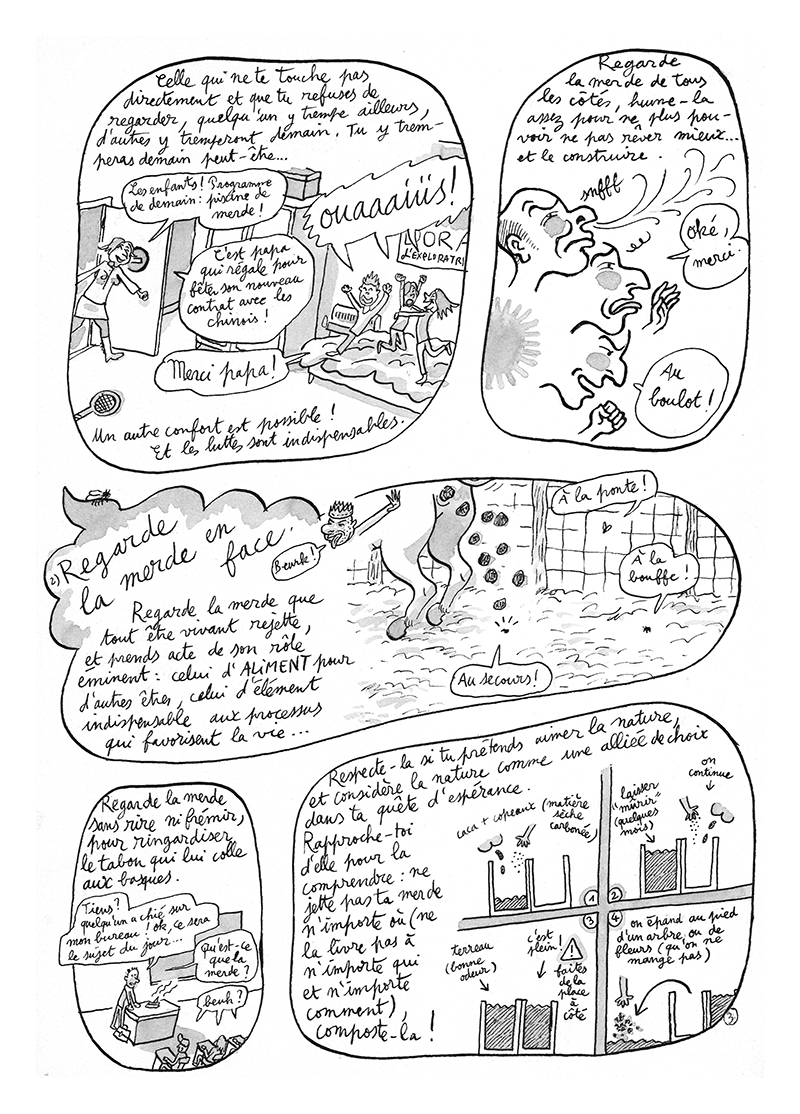 Celle qui ne te touche pas
directement et que tu refuses de
regarder, quelqu'un y trempe ailleurs,
d'autres y tremperont demain. Tu y trem-
peras demain peut-être...
Les enfants! Programme
de demain: piscine de
merde!
ouaaaiiis!
C'est papa
qui régale pour
fêter son nouveau
contrat avec les
chinois!
DORA
L'EXPLORATRI
Merci papa!
Un autre confort est possible!
Et les luttes sont indispensables.
Regarde
la merde de tous
les côtés, hume-la
assez pour ne plus pou-
voir ne pas rêver mieux...
et le construire.
snfff
oké,
merci.
Au
boulot!
2) Regarde
la merde en
face.
Beurk!
Regarde la merde que
tout être vivant rejette,
et prends acte de son rôle
éminent: celui d'ALIMENT pour
d'autres êtres, celui d'élément
indispensable aux processus
qui favorisent la vie...
À la ponte!
À la
bouffe!
Au secours!
Regarde la merde
sans rire ni frémir,
pour ringardiser
le tabou qui lui colle
aux basques.
Tiens?
quelqu'un a chié sur
mon bureau! ok, ce sera
le sujet du jour...
Qu'est-ce
que la
merde?
beuh?
Respecte-la si tu prétends aimer la nature,
et considère la nature comme une alliée de choix
dans ta quête d'espérance.
Rapproche-toi
d'elle pour la
comprendre: ne
jette pas ta merde
n'importe où (ne
la livre pas à
n'importe qui
et n'importe
comment),
composte-la!
caca + copeaux (matière
sèche
carbonée)
1
laisser
"mûrir"
(quelques
mois)
on
continue
2
3
terreau
(bonne
odeur)
c'est
plein!
!
faites
de la
place
à
côté
4
on épand au pied
d'un arbre, ou de
fleurs (qu'on ne
mange pas)
3